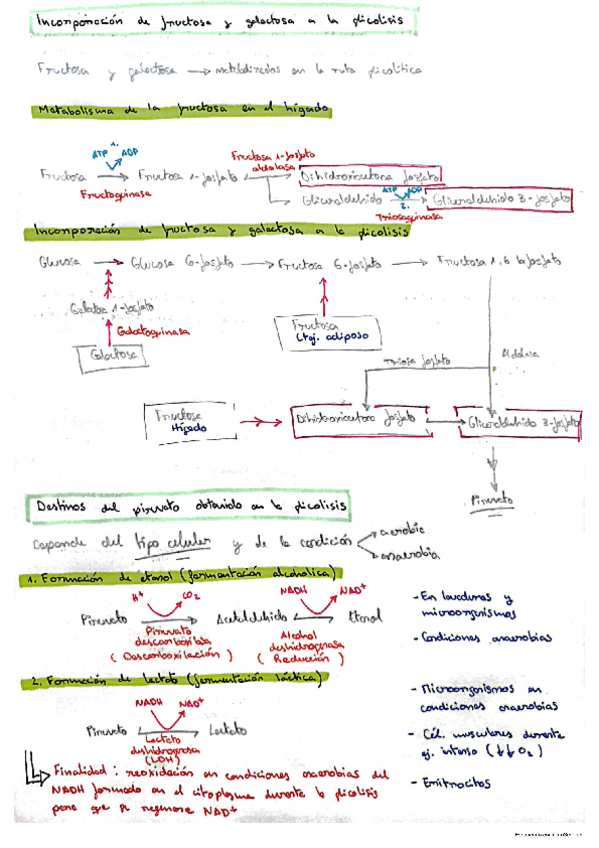 Incorporación de fructosa y galactosa a la glicolisis
Fructosa y galactosa → metabolizados en la ruta glicolítica
Metabolismo de la fructosa en el hígado
1.
ATP ADP
Fructosa → Fructosa 1-fosfato
Fructoquinasa
Fructosa 1-fosfato
aldolasa
Dihidroxicetona fosfato
Gliceraldehído
ATP ADP
2.
Trioquinasa
Gliceraldehído 3-fosfato
Incorporación de fructosa y galactosa a la glicolisis
Glucosa → Glucosa 6-fosfato → Fructosa 6-fosfato → Fructosa 1,6 bifosfato
Galactosa 1-fosfato
Galactoquinasa
Galactosa
Fructosa
(tej. adiposo
Triosa fosfato
Aldolasa
Fructosa
Hígado
Dihidroxicetona fosfato
Gliceraldehído 3-fosfato
Piruvato
Destinos del piruvato obtenido en la glicolisis
Depende del tipo celular y de la condición
aerobia
anaerobia
1. Formación de etanol (fermentación alcohólica)
H+ CO2 NADH NAD+
Piruvato → Acetaldehído → Etanol
Piruvato
descarboxilasa
(Descarboxilación)
Alcohol
deshidrogenasa
(Reducción)
- En levaduras y
microorganismos
- Condiciones anaerobias
2. Formación de lactato (fermentación láctica)
NADH NAD+
Piruvato → Lactato
Lactato
deshidrogenasa
(LDH)
- Microorganismos en
condiciones anaerobias
- Cél. musculares durante
ej. intenso (↓↓O2)
- Eritrocitos
Finalidad: reoxidación en condiciones anaerobias del
NADH formado en el citoplasma durante la glicolisis
para que se regenere NAD+